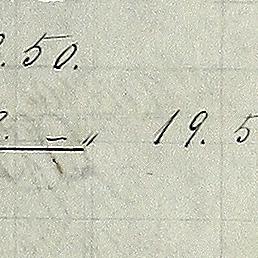 .50.
. — " 19. 5